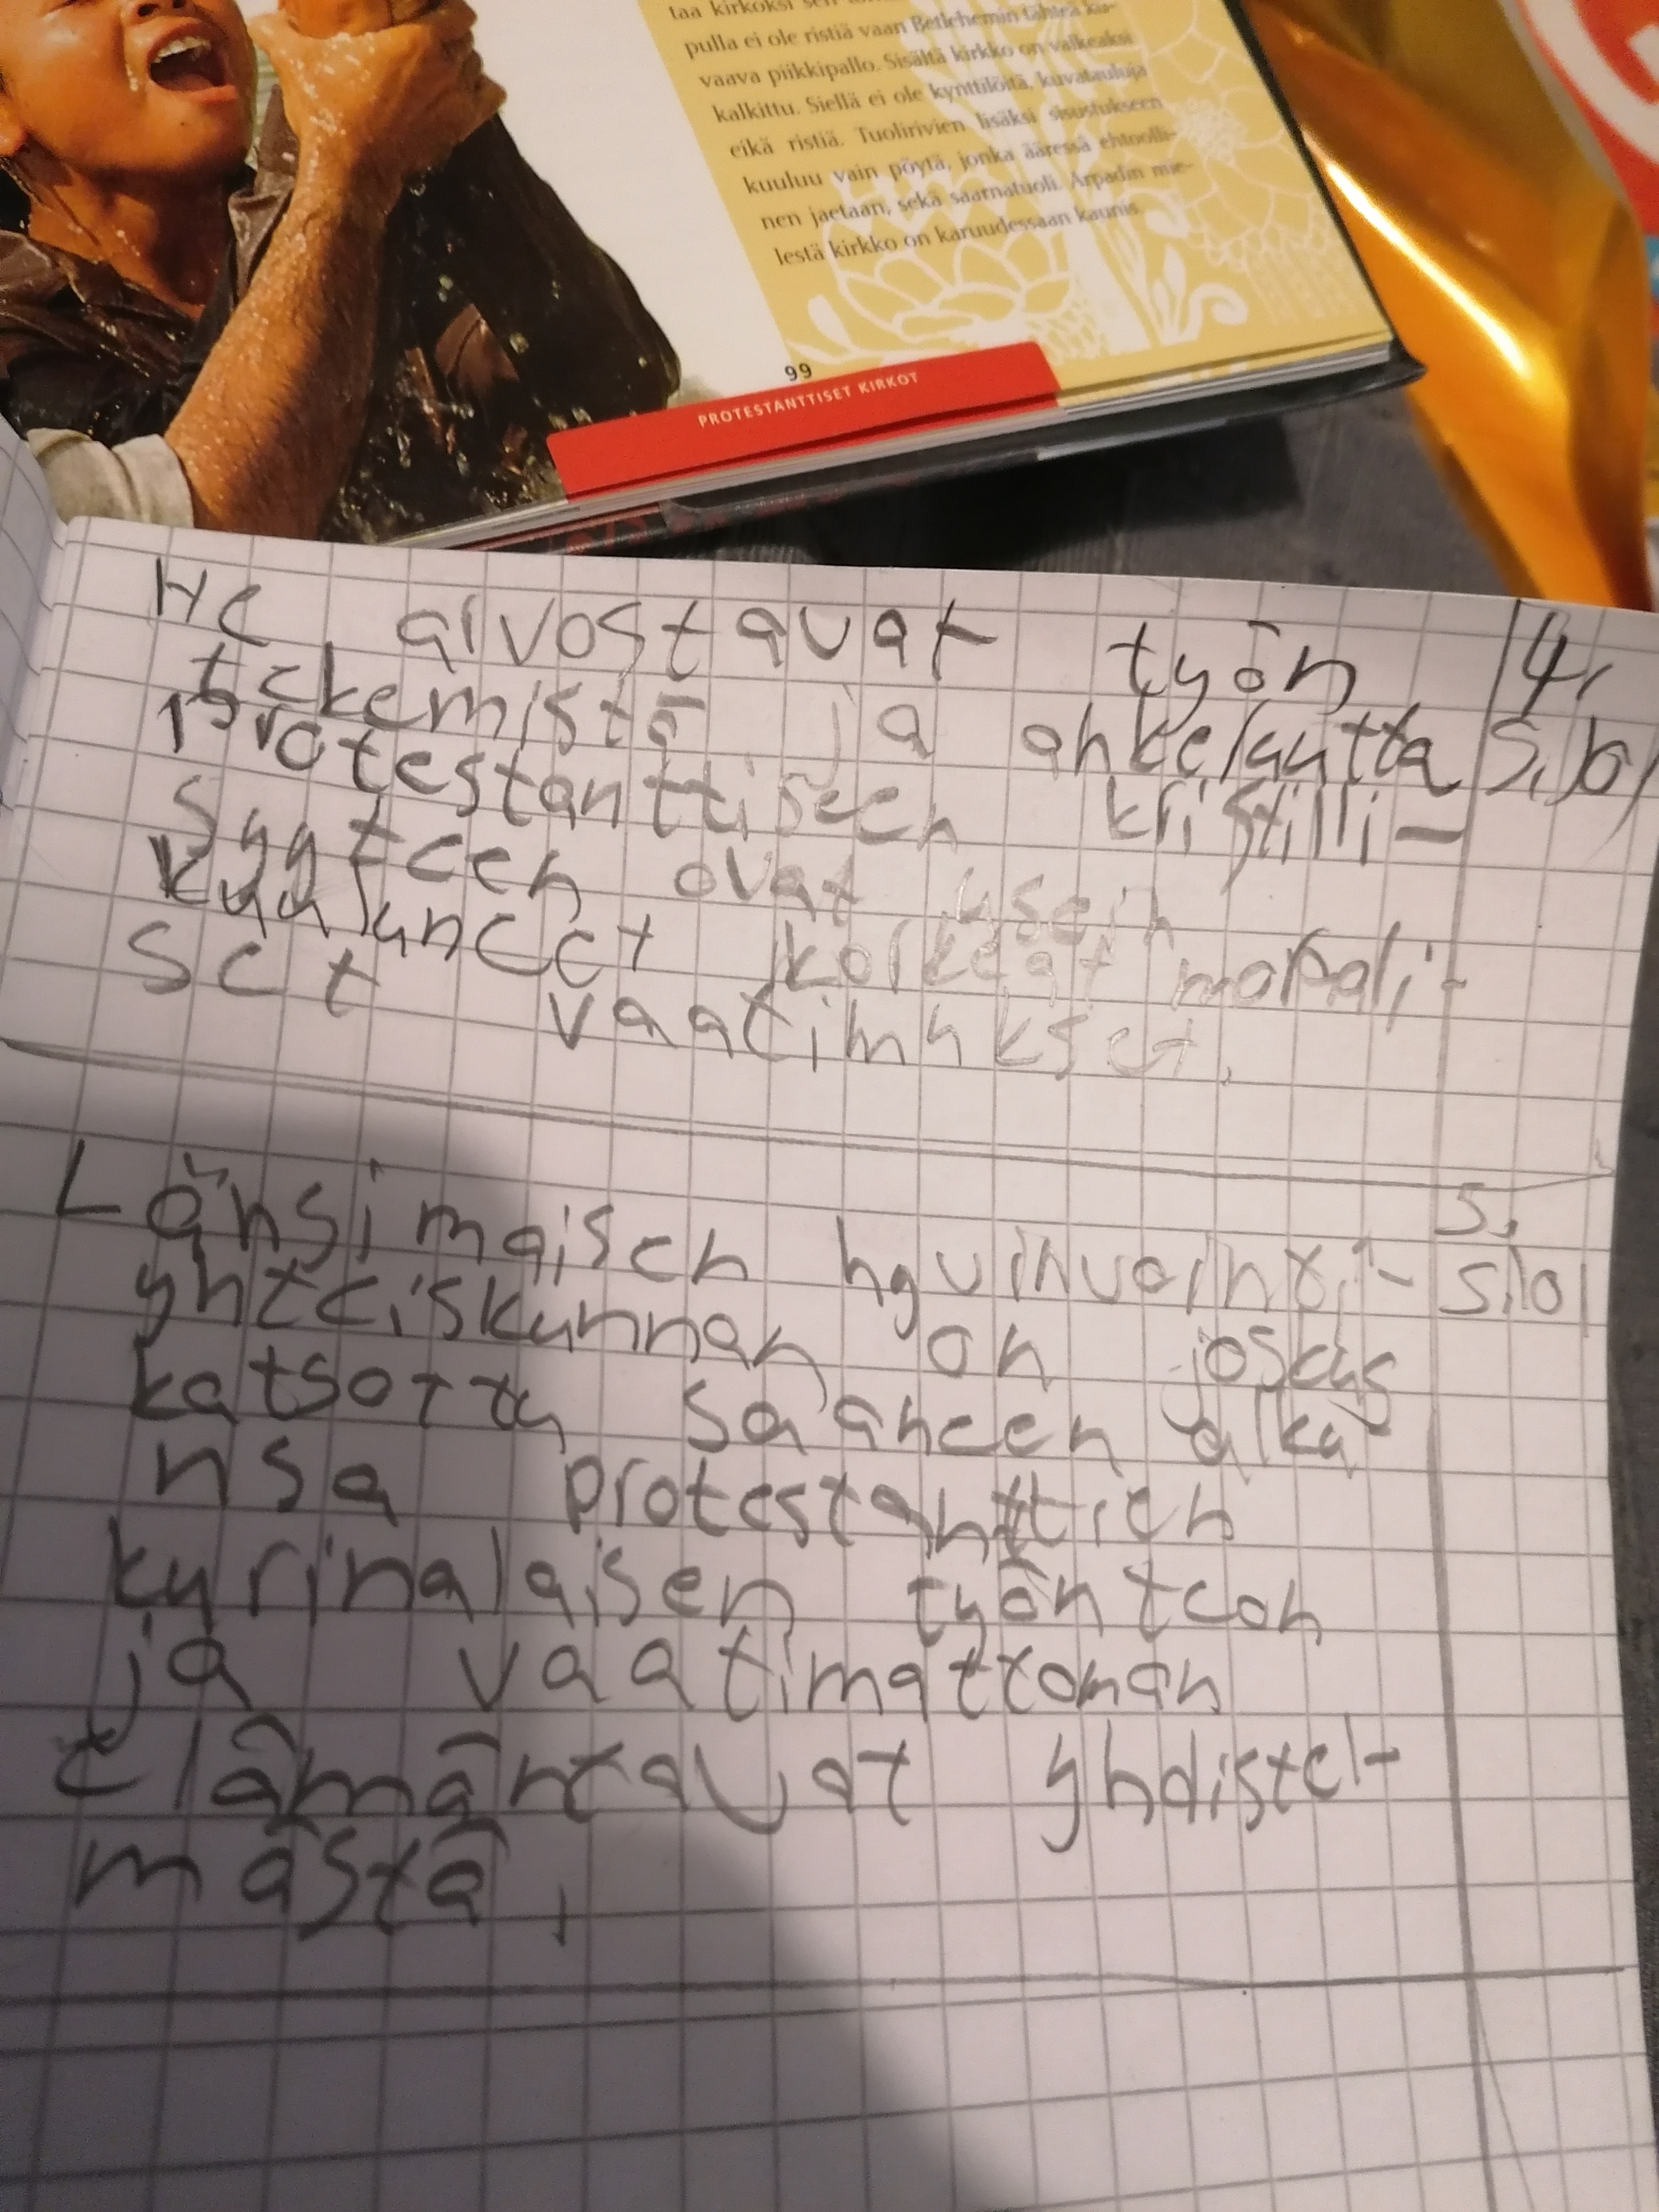 taa kirkoksi sen
pulla ei ole ristiä vaan Betlehemin tähteä ku-
vaava piikkipallo. Sisältä kirkko on valkeaksi
kalkittu. Siellä ei ole kynttilöitä, kuvatauluja
eikä ristiä. Tuolirivien lisäksi sisustukseen
kuuluu vain pöytä, jonka ääressä ehtoolli-
nen jaetaan, sekä saarnatuoli. Arpadin mie-
lestä kirkko on karuudessaan kaunis.
99
PROTESTANTTISET KIRKOT
He arvostavat työn 4.
tekemistä ja ahkeruutta
Protestanttiseen kristilli-
syyteen ovat usein
kuuluneet korkeat morali-
set vaatimukset.
Länsimaisen hyvinvointi- 5.
yhteiskunnan on joskus
katsottu saaneen alku
nsa protestanttien
kurinalaisen työnteon
ja vaatimattoman
elämäntavat yhdistel-
mästä.